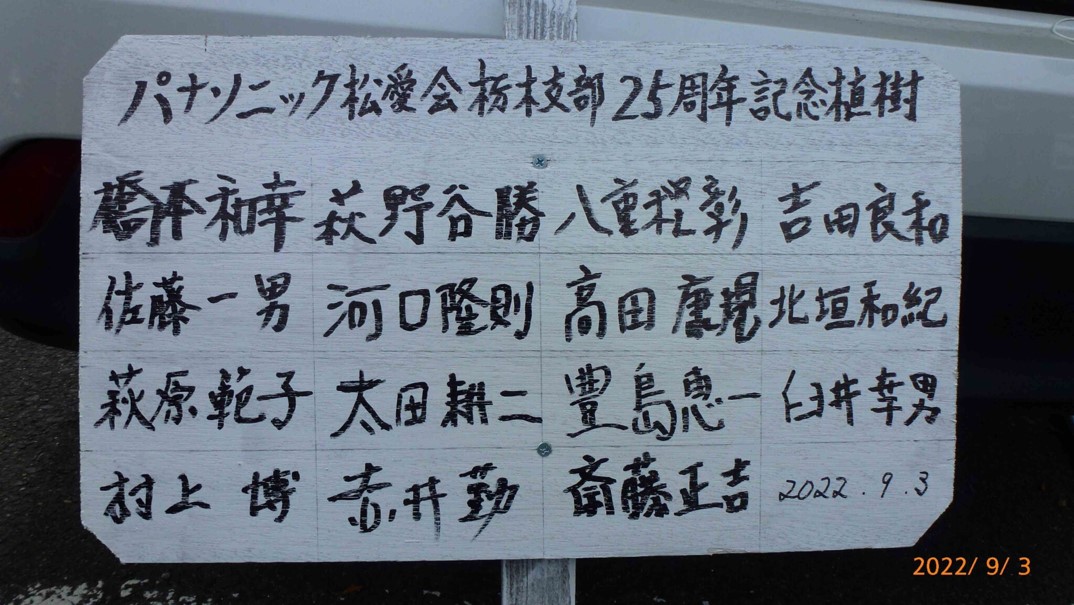 パナソニック松愛会栃木支部25周年記念植樹
橋本和幸 萩野谷勝 八重樫彰 吉田良和
佐藤一男 河口隆則 高田康規 北垣和紀
萩原範子 太田耕二 豊島恵一 臼井幸男
村上博 赤井勤 斎藤正吉 2022.9.3
2022/ 9/ 3